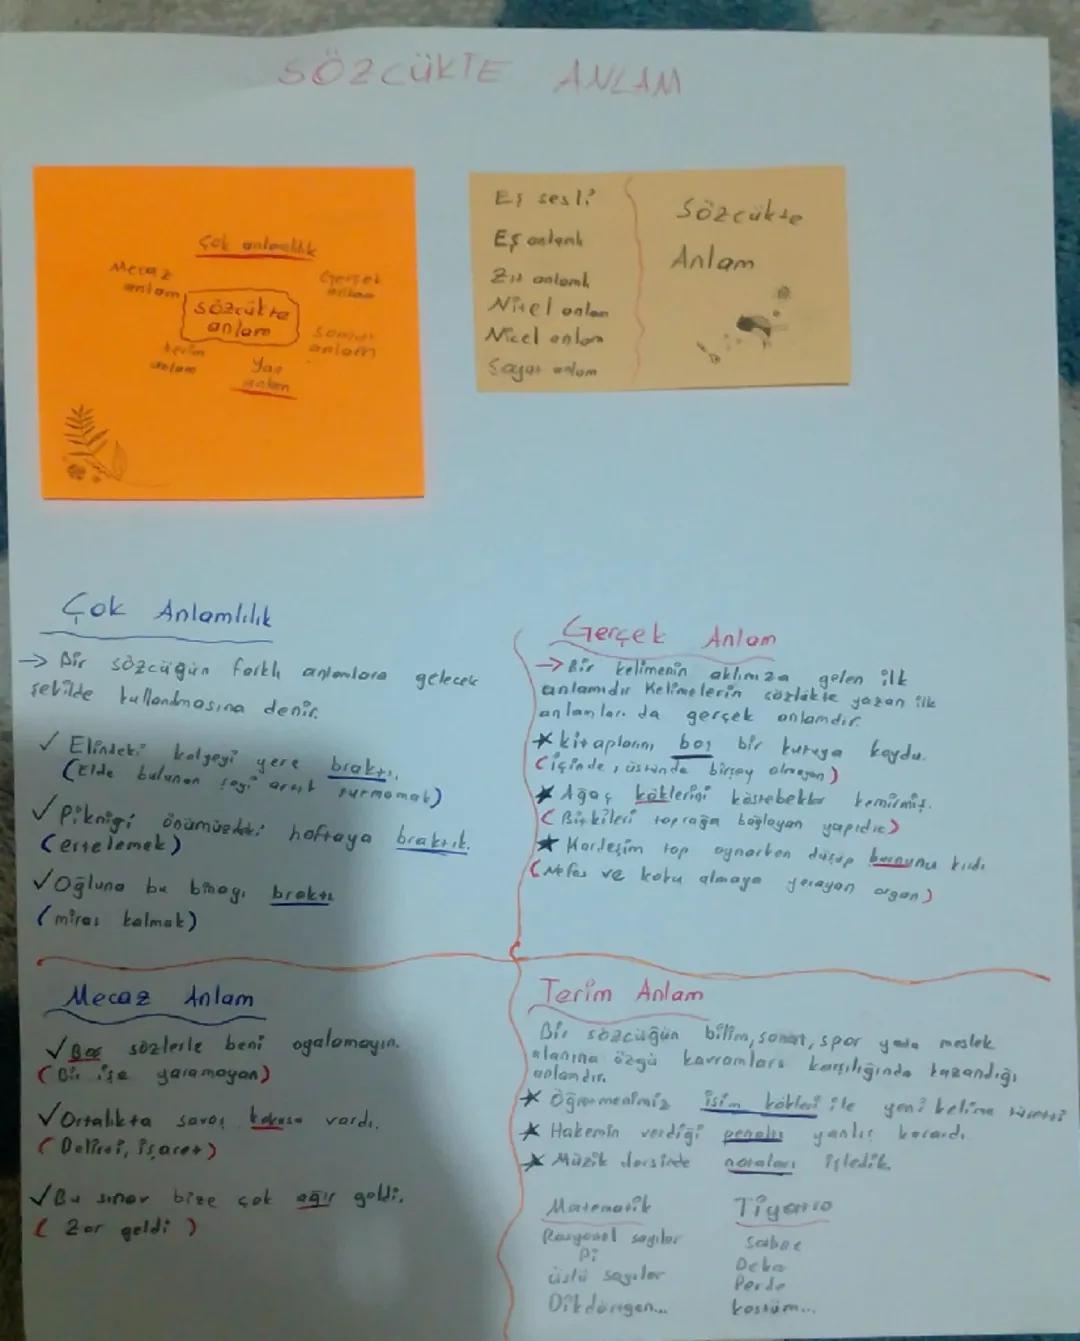 SÖZCÜKTE ANLAM
Çok anlamlılık
Mecaz anlam
Gerçek anlam
sözcükte anlam
Somut anlam
terim anlam
Yan anlam
Eş sesli
Eş anlamlı
Zıt anlamlı
Nitel anlam
Nicel anlam
Soyut anlam
Sözcükte
Anlam
Çok Anlamlılık
→ Bir sözcüğün farklı anlamlara gelecek
şekilde kullanılmasına denir.
✓ Elindeki kalgeyi yere bıraktı.
(Elde bulunan şeyi artık
✓ Pikniği önümüzdeki haftaya bıraktık.
(ertelemek)
✓ Oğluna bu binayı bıraktı
(miras kalmak)
Gerçek Anlam
→ Bir kelimenin aklımıza gelen ilk
anlamıdır Kelimelerin sözlükte yazan ilk
anlamları da gerçek anlamdır.
★ kitaplarını boş bir kutuya koydu.
(içinde, üstünde birşey olmayan)
★ Ağaç köklerini köstebekler kemirmiş.
(Bitkileri toprağa bağlayan yapıdır)
★ Kardeşim top oynarken düşüp burnunu kırdı
(Nefes ve koku almaya yarayan organ)
Mecaz Anlam
✓ Boş sözlerle beni oyalamayın.
(Bir işe yaramayan)
✓ Ortalıkta savaş kokusu vardı.
(Belirti, işaret)
✓ Bu sınav bize çok ağır geldi.
(Zor geldi)
Terim Anlam
Bir sözcüğün bilim, sanat, spor yada meslek
alanına özgü kavramları karşılığında kazandığı
anlamdır.
★ Öğretmenimiz isim kökleri ile yeni kelime türetti
★ Hakemin verdiği penaltı yanlış karardı.
★ Müzik dersinde notaları işledik.
Matematik
Rasyonel sayılar
Pi
üslü sayılar
Dikdörtgen...
Tiyatro
Sahne
Deko
Perde
kostüm...